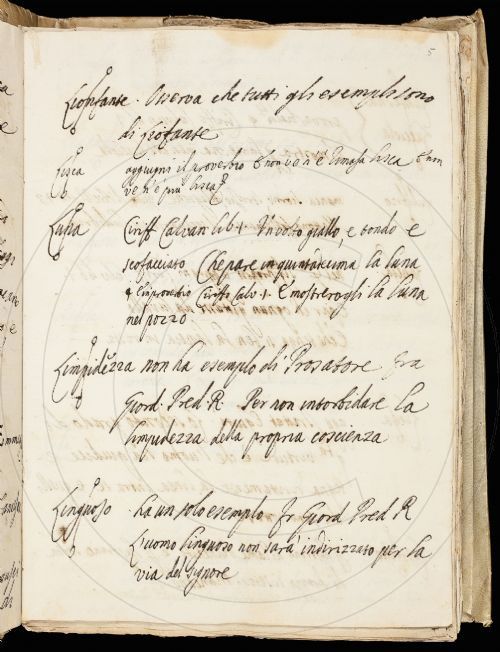 5
Liofante. Osserva che tutti gli esempli sono
di Liofante
Lisca aggiugni il proverbio E non ve n'è rimasa lisca E non
ve n'è più lisca
Luna Ciriff Calvan lib. 1. Un volto giallo, e tondo e
scofacciato Che pare in quintadecima la luna
e in proverbio Ciriffo Calv. 1. E mostrerogli la luna
nel pozzo
Limpidezza non ha esemplo di Prosatore fra
Giord. Pred. R. Per non intorbidare la
limpidezza della propria coscienza
Linguoso ha un solo esemplo Fr Giord Pred R
L'uomo linguoso non sarà indirizzato per la
via del signore